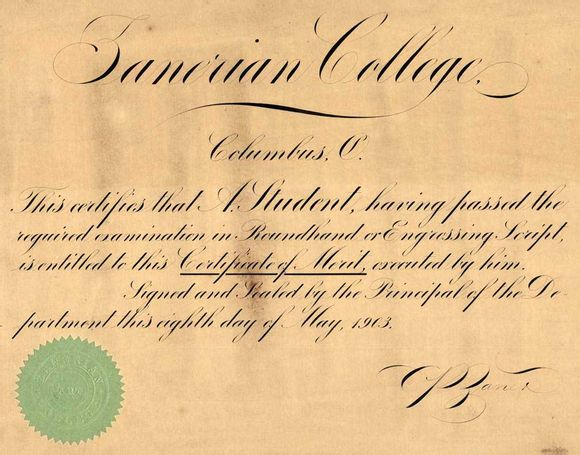 Zanerian College.
Columbus, O.
This certifies that A. Student, having passed the
required examination in Roundhand or Engrossing Script,
is entitled to this Certificate of Merit, executed by him.
Signed and Sealed by the Principal of the De-
partment this eighth day of May, 1903.
CP Zaner
ZANERIAN